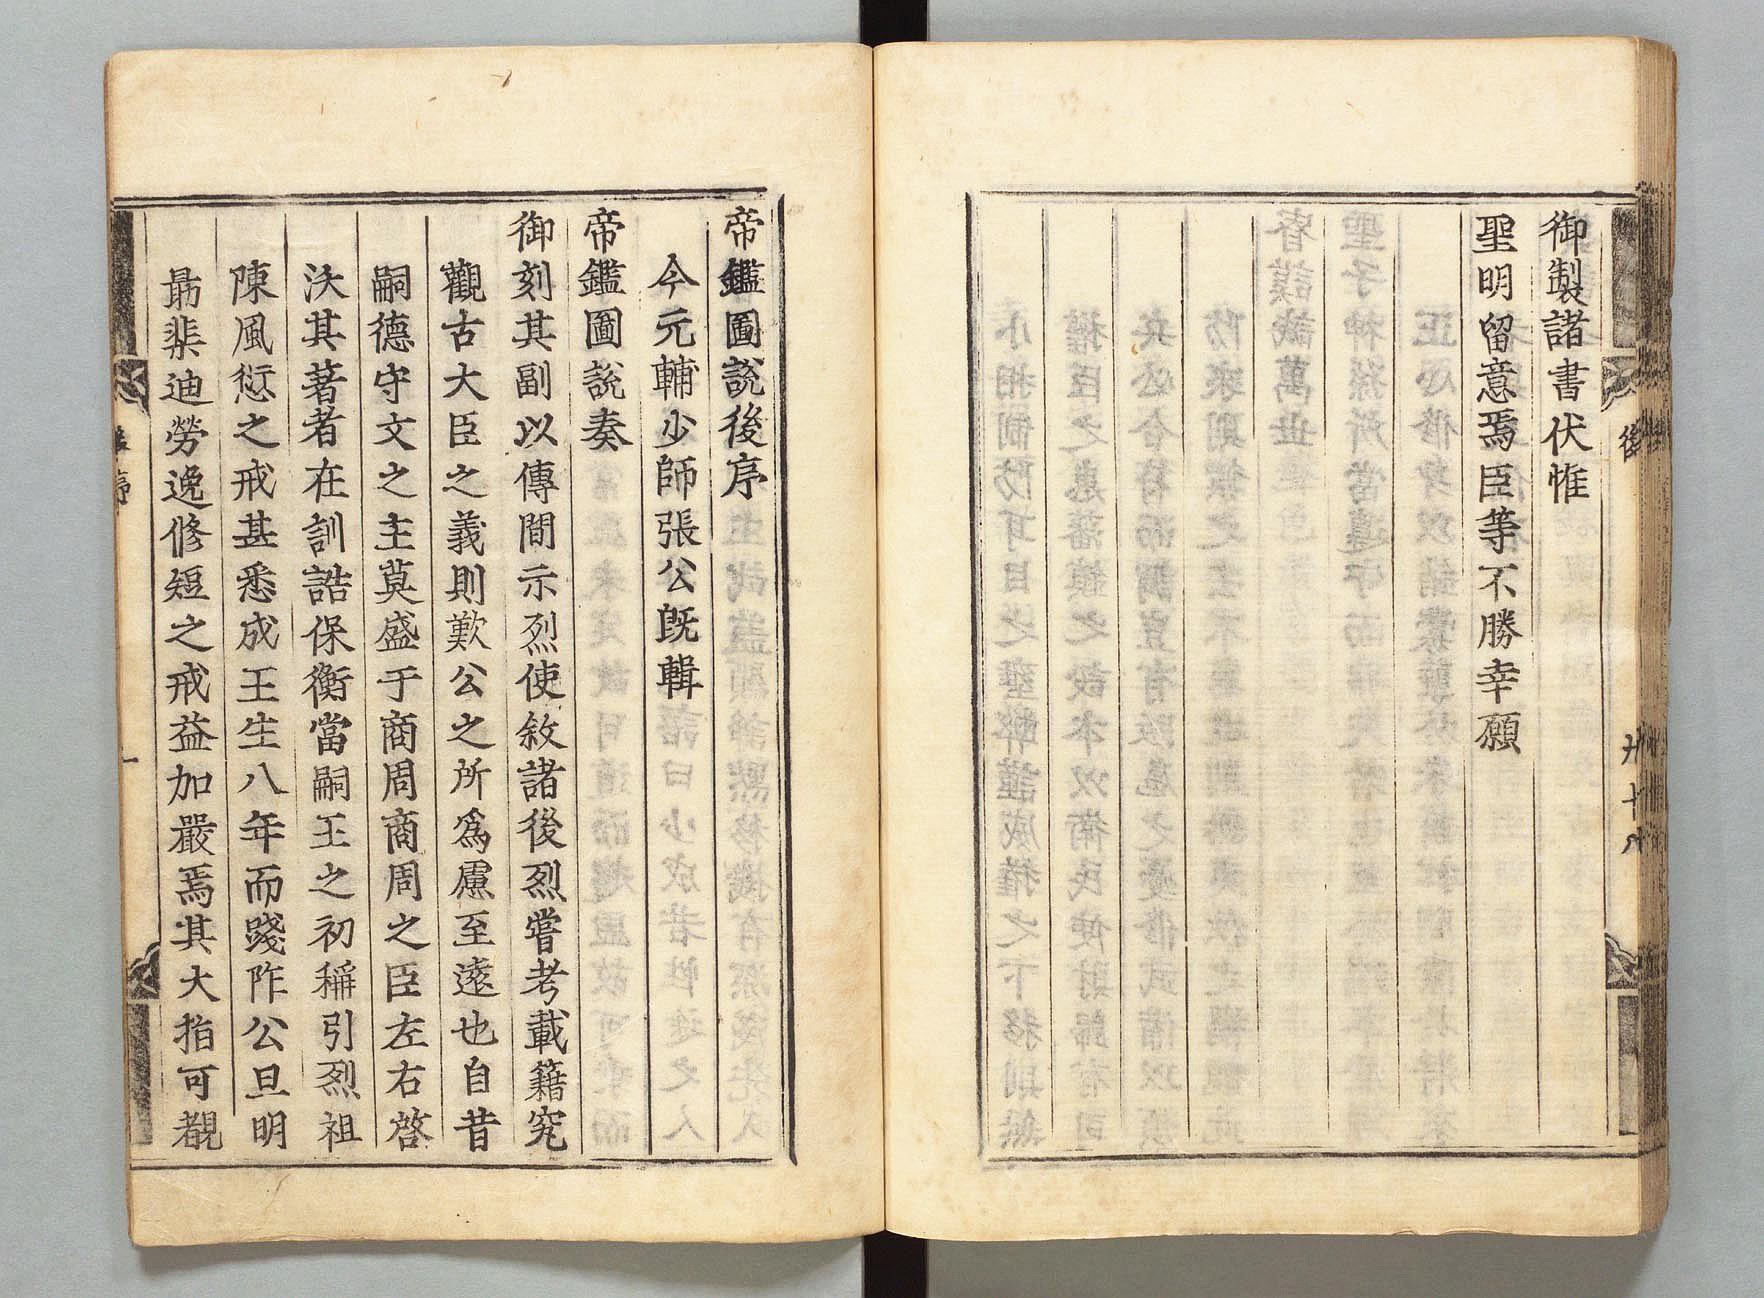 御製諸書伏惟
聖明留意焉臣等不勝幸願
帝鑑圖說後序
今元輔少師張公旣輯
帝鑑圖說奏
御刻其副以傳間示烈使敘諸後烈嘗考載籍究
觀古大臣之義則歎公之所爲慮至遠也自昔
嗣德守文之主莫盛于商周商周之臣左右啓
沃其著者在訓誥保衡當嗣王之初稱引烈祖
陳風愆之戒甚悉成王生八年而踐阼公旦明
勗棐迪勞逸修短之戒益加嚴焉其大指可覩